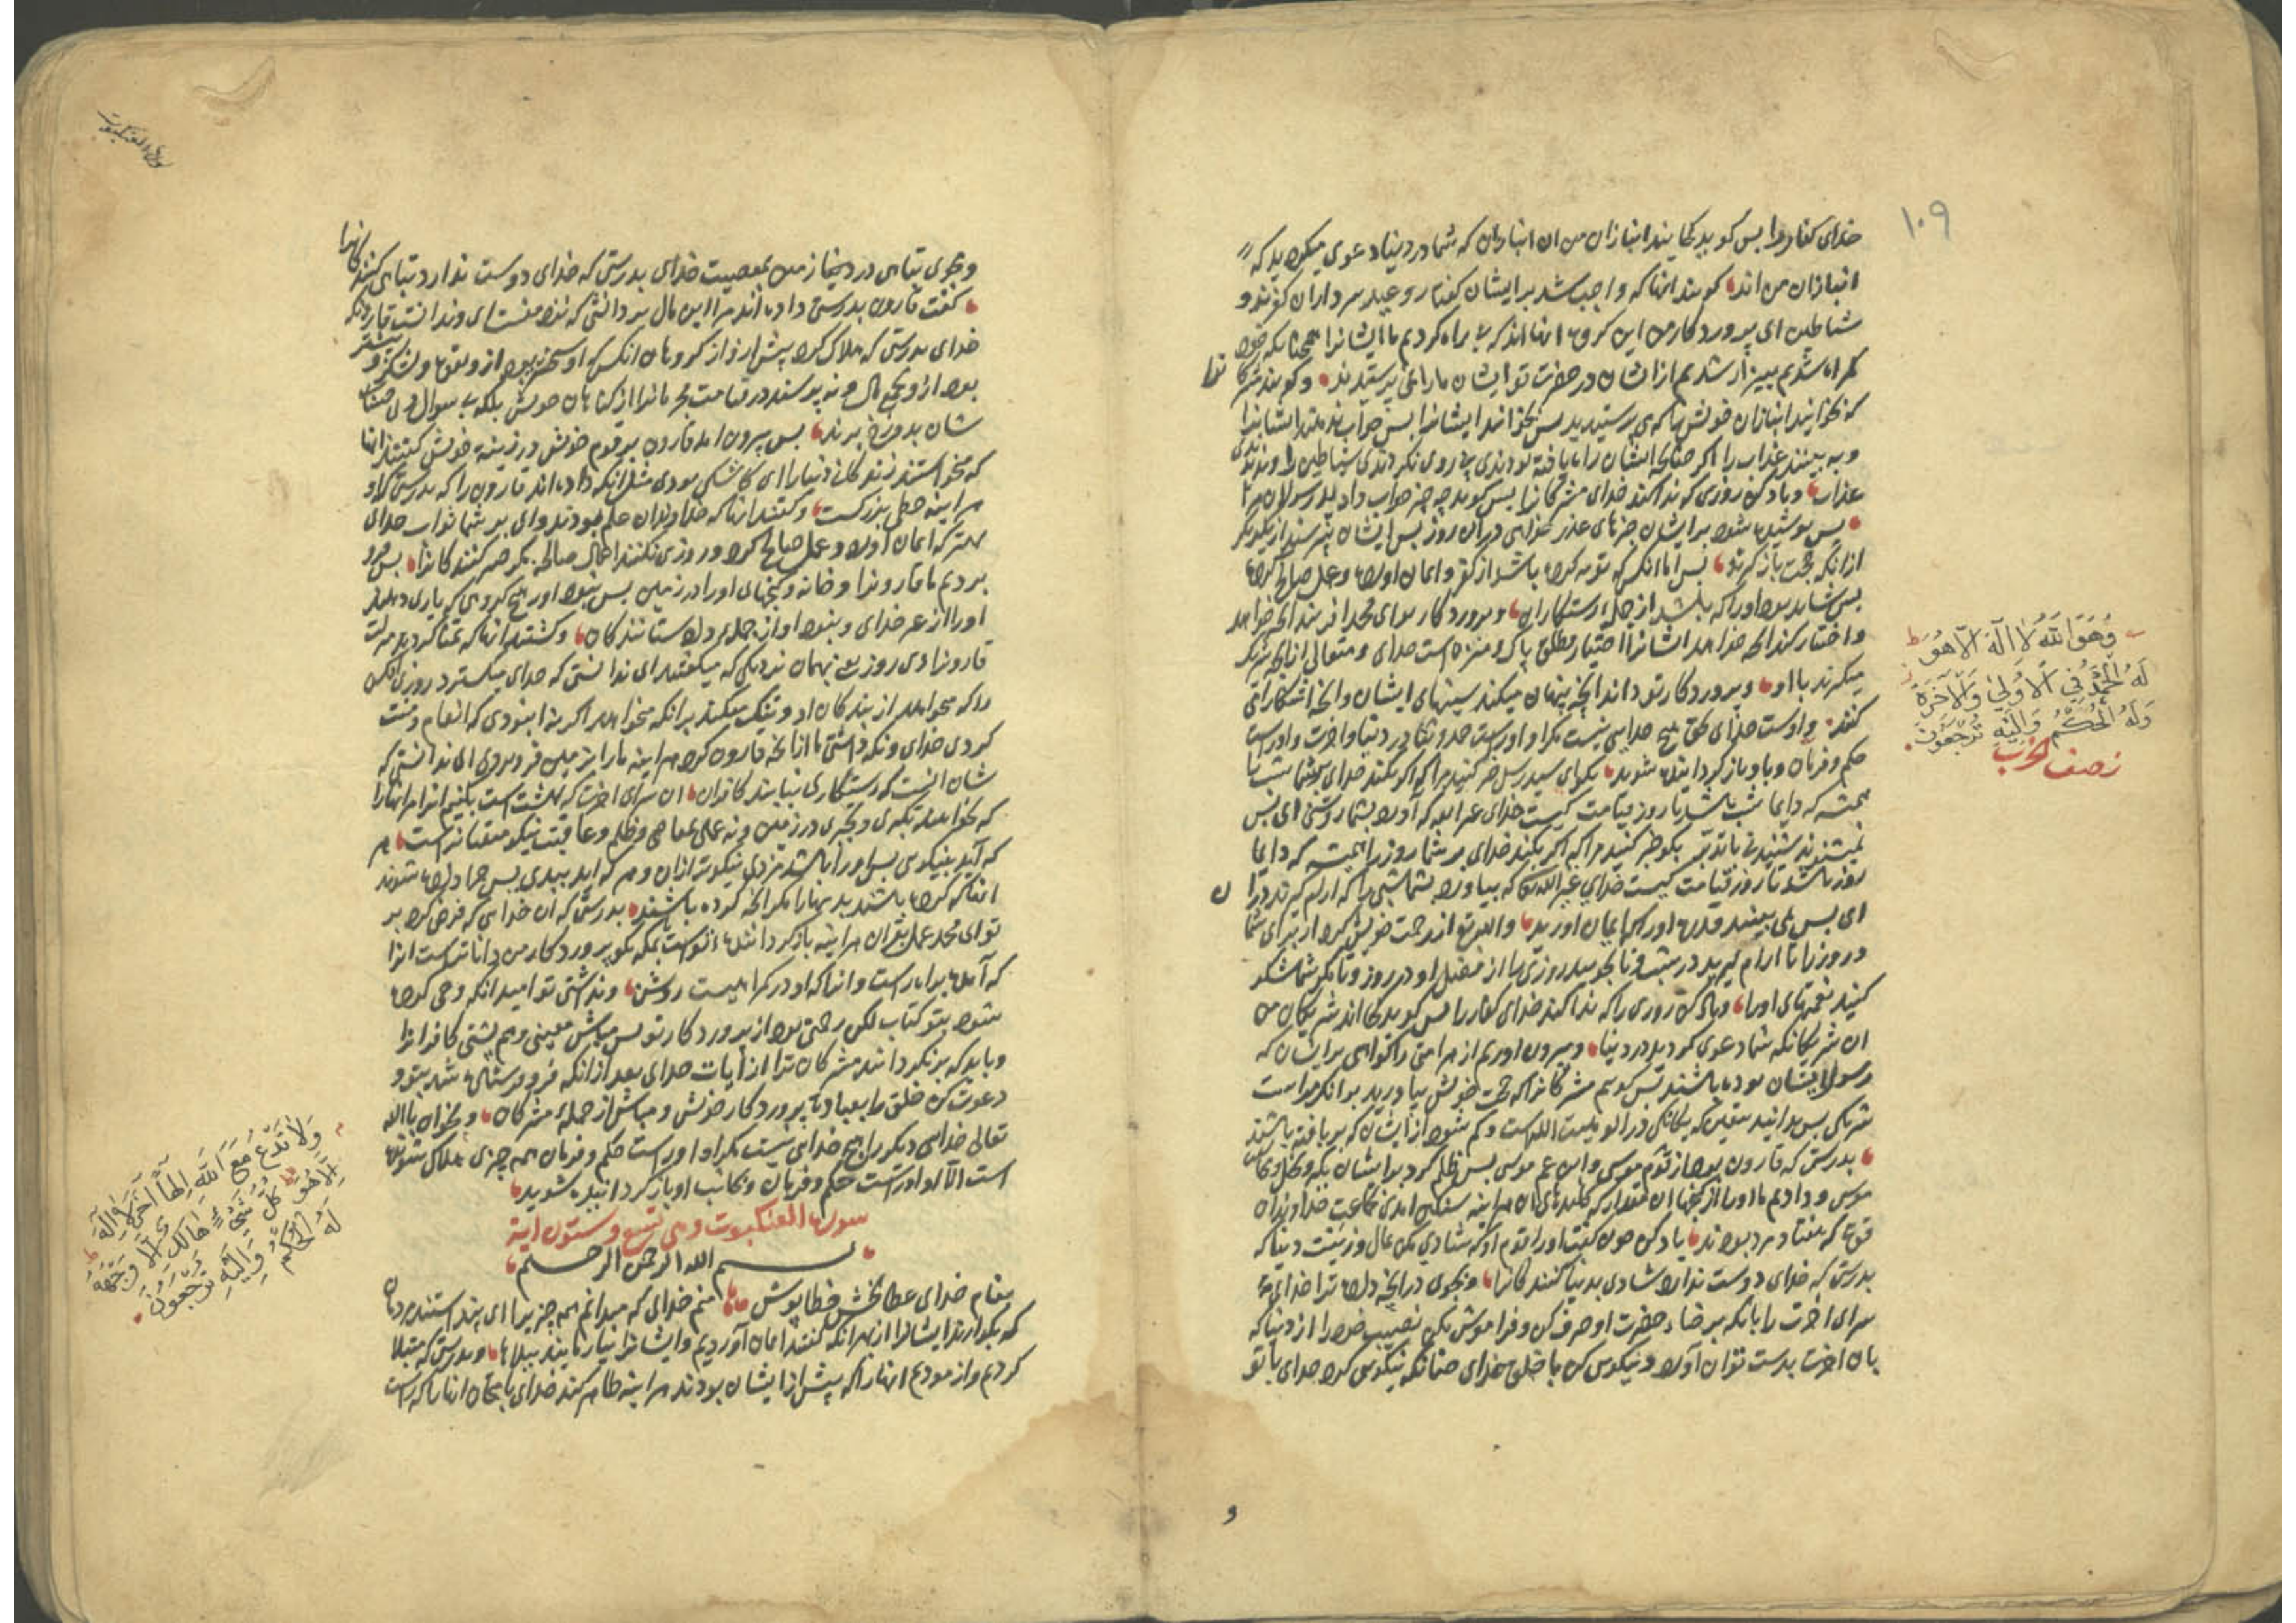 ۱۰۹
خدای کفار را بس کوید کجایند انبازان من ان انبازان که شما در دنیا دعوی میکردید که
انبازان من اند کویند انها که واجب شد بر ایشان کفتار وعید سرداران کفر و
شیاطین ای پرورد کار من این کروه انها اند که بی راه کردیم ما ایشانرا همچنانکه خود
کمراه شدیم بیزار شدیم از ایشان در حضرت تو ایشان ما را نمی پرستیدند و کویند مشرکا نرا
که بخوانید انبازان خویش را که می پرستیدید بس بخوانند ایشانرا بس جواب ندهند ایشانرا
و به بینند عذاب را اکر چنانکه ایشان راه یافته بودندی پی روی نکردندی شیاطین را و ندیدندی
عذاب و یاد کن روزی که ندا کند خدای مشرکانرا بس کوید چه چیز جواب دادید رسولان مرا
بس پوشیده شود بر ایشان خبرهای عذر خواهی در ان روز بس ایشان نپرسند از یکدیکر
از انکه حجت باز کرند بس اما انکس که توبه کرده باشد از کفر و ایمان اورده و عمل صالح کرده
بس شاید بود او را که باشد از جمله رستکاران و پرورد کار تو ای محمد افریند انچه خواهد
و اختیار کند انچه خواهد ایشانرا اختیار مطلق پاک و منزه است خدای و متعالی از انچه شریک
میکیرند با او و پرورد کار تو داند انچه پنهان میکند سینهای ایشان و انچه اشکارا می
کنند و اوست خدای بحق هیچ خدایی نیست مکر او و اوراست حمد و ثنا در دنیا و اخرت و اوراست
حکم و فرمان و باو باز کردانیده شوید بکو ای سید رسل خبر کنید مرا که اکر بکند خدای بر شما شب را
همیشه که دایما شب باشد تا روز قیامت کیست خدای غیر الله که آورد بشما روشنی ای بس
نمیشنوید شنیدنی با تدبر بکو خبر کنید مرا که اکر بکند خدای بر شما روز را همیشه که دایما
روز باشد تا روز قیامت کیست خدای غیر الله که بیاورد بشما شبی را که ارام کیرید در ان
ای بس نمی بینید قدرت او را که ایمان اورید و الله تع از رحمت خویش کرد از برای شما
و روز را تا ارام کیرید در شب و تا بجویید روزی را از فضل او در روز و تا مکر شما شکر
کنید نعمتهای اورا و یاد کن روزی را که ندا کند خدای کفار را بس کوید کجا اند شریکان من
ان شریکانکه شما دعوی کردید در دنیا و بیرون اوریم از هر امتی را کواهی بر ایشان که
رسول ایشان بوده باشند بس کوییم مشرکانرا که حجت خویش بیاورید بر انکه مراست
شریکی بس بدانند بیقین که یکانکی در الوهیت الله راست و کم شود از ایشان که بر بافته باشند
بدرستی که قارون بود از قوم موسی و ابن عم موسی بس ظلم کرد بر ایشان
موسی و دادیم ما او را از کنجها ان مقدار که کلیدهای ان هر اینه سنکین امدی بجماعت خداوندان
قوت که هفتاد مرد بودند یاد کن چون کفت او را قوم او که شادی مکن بمال و زینت دنیا که
بدرستی که خدای دوست ندارد شادی بدنیا کنند کانرا و بجوی در انچه داده ترا خدای تع
سرای اخرت را بانکه برضاء حضرت او صرف کن و فراموش مکن نصیب خود را از دنیا که
بان اخرت بدست توان آورد و نیکویی کن با خلق خدای چنانکه نیکویی کرد خدای با تو
و
وَهُوَ اللّٰهُ لَا اِلٰهَ اِلَّا هُوَ
لَهُ الْحَمْدُ فِي الْاُولٰى وَالْاٰخِرَةِ
وَلَهُ الْحُكْمُ وَاِلَيْهِ تُرْجَعُونَ
نصف الحزب
سورة العنکبوت
و مجوی تباهی در دنیا زمین بمعصیت خدای بدرستی که خدای دوست ندارد تباهی کنند کانرا
کفت قارون بدرستی داده اند مرا این مال بر دانشی که نزد منست ای و ندانست قارونکه
خدای بدرستی که هلاک کرد پیش از و از کروهان انکس که او سختر بود از و بقوت و لشکر و بیشتر
بود از و بجمع مال و نه پرسند در قیامت مجرمانرا از کناهان خویش بلکه بی سوال
شان بدوزخ برند بس بیرون امد قارون بر قوم خویش در زینت خویش کفتند انها
که میخواستند زند کانی دنیا را ای کاشکی بودی مثل انکه داده اند قارون را که بدرستی که او
هر اینه حظی بزرکست و کفتند انها که خداوندان علم بودند وای بر شما ثواب خدای
بهتر که ایمان آورد و عمل صالح کرد و روزی نکنند اعمال صالحه مکر صبر کنند کانرا بس فرو
بردیم ما قارونرا و خانه و کنجهای او را در زمین بس نبود او را هیچ کروهی که یاری دهند
او را از غیر خدای و نبود او از جمله داد ستانند کان و کشتند انها که تمنا کردند منزلت
قارونرا دی روز یعنی بهمان نزدیکی که میکفتند ای ندانستی که خدای میکسترد روزی
را که میخواهد از بند کان او و تنک میکند بر انکه میخواهد اکر نه ان بودی که انعام و منت
کردی خدای و نکذاشتی ما انانکه قارون کرد هر اینه ما را بزمین فرو بردی ای ندانستی که
شان انست که رستکاری نیابند کافران ان سرای اخرت که بهشت است بکنیم انرا مر انها را
که نخواهند تکبری و تجبری در زمین و نه عملی بمعاصی و ظلم و عاقبت نیکو متقیانراست هر
که آید بنیکویی بس او را باشد مزدی نیکوتر ازان و هر که اید ببدی بس جزا داده شوند
انها که کرده باشند بدیها را مکر انچه کرده باشند بدرستی که ان خدایی که فرض کرد بر
تو ای محمد عمل بقران هر اینه باز کرداننده توست بمکه بکو پرورد کار من داناترست انرا
که آمده براه راست و انرا که او در کمراهیست روشن و نداشتی تو امید انکه وحی کرده
شود بتو کتاب لکن رحمتی بود از پرورد کار تو بس مباش معینی و هم پشتی کافرانرا
و باید که بر نکردانند مشرکان ترا از آیات خدای بعد از انکه فرو فرستاده شد بتو و
دعوت کن خلق را بعبادت پرورد کار خویش و مباش از جمله مشرکان و مخوان با الله
تعالی خدایی دیکر را هیچ خدایی نیست مکر او او راست حکم و فرمان همه چیزی هلاک شونده
است الا او او راست حکم و فرمان و بجانب او باز کردانیده شوید
سورة العنکبوت و هی تسع و ستون ایة
بسم الله الرحمن الرحیم
بنام خدای عطا بخش خطا پوش منم خدای که میدانم همه چیز را ای پنداشتند مردمان
که بکذارند ایشانرا از بهر انکه کفتند ایمان آوردیم و ایشانرا نیازمایند ببلاها و بدرستی که مبتلا
کردیم و ازمودیم انها را که پیش از ایشان بودند هر اینه ظاهر کند خدای بامتحان انها را که راست
وَلَا تَدْعُ مَعَ اللّٰهِ اِلٰهًا اٰخَرَ لَا اِلٰهَ
اِلَّا هُوَ كُلُّ شَيْءٍ هَالِكٌ اِلَّا وَجْهَهُ
لَهُ الْحُكْمُ وَاِلَيْهِ تُرْجَعُونَ